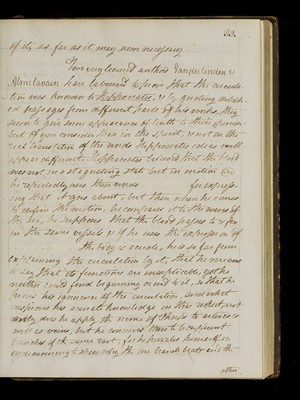 33.
of it, so far as it may seem necessary
Two very learned authors Vanderlinden &
Almeloveen have laboured to prove that the circula-
tion was known to Hippocrates, & by quoting detach
ed passages from different parts of his works, they
seem to give some appearance of truth to their opinion
but if you consider them in the spirit, & not in the
literal translation of the words Hippocrates ideas will
appear different. Hippocrates believed that the blood
was not in a stagnating state but in motion
he repeatedly uses these words for express-
ing that it goes about, but then when he comes
to define this motion, he compares it to the waves of
the sea, he supposes that the blood passes to & fro
in the same vessels & if he uses the expression of
the body is a circle, he is so far from
explaining the circulation by it, that he means
to say that its functions are inexplicable, yet he
neither could find beginning or end to it, so that he
proves his ignorance of the circulation, and what
confirms his knowledge in this
does he apply the name of to arteries as
well as veins, but he conceived them to be different
branches of the same root, for he puzzles himself in
endeavouring to shew why the one should beat and the
other